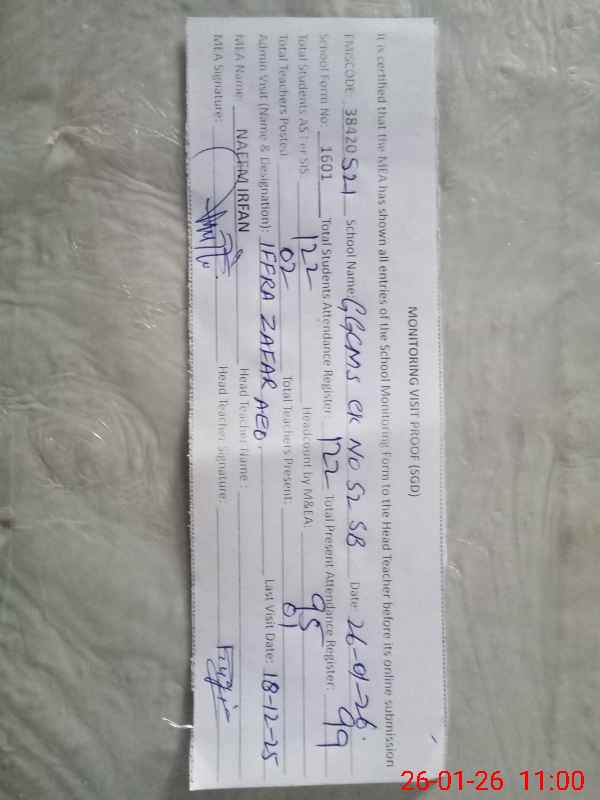 MONITORING VISIT PROOF (SGD)
It is certified that the MEA has shown all entries of the School Monitoring Form to the Head Teacher before its online submission
EMISCODE: 38420521 School Name: GGCMS CK NO 52 SB Date: 26-01-26.
School Form No: 1601 Total Students Attendance Register: 122 Total Present Attendance Register: 99
Total Students AS Per SIS 122 Headcount by M&EA: 95
Total Teachers Posted 02 Total Teachers Present: 01
Admin Visit (Name & Designation): IFFRA ZAFAR AEO. Last Visit Date: 18-12-25
MEA Name: NAEEM IRFAN Head Teacher Name :
MEA Signature: Head Teacher Signature:
26-01-26 11:00